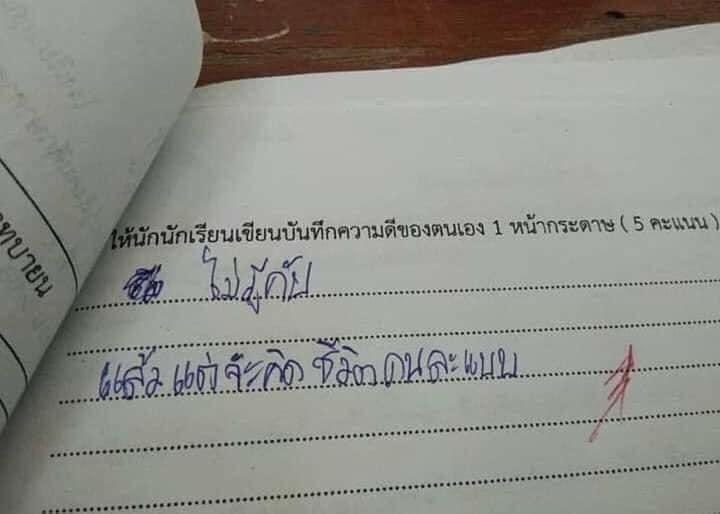 ให้นักนักเรียนเขียนบันทึกความดีของตนเอง 1 หน้ากระดาษ ( 5 คะแนน )
ไม่รู้คับ
แล้ว แต่จะคิด ชีวิตคนละแบบ